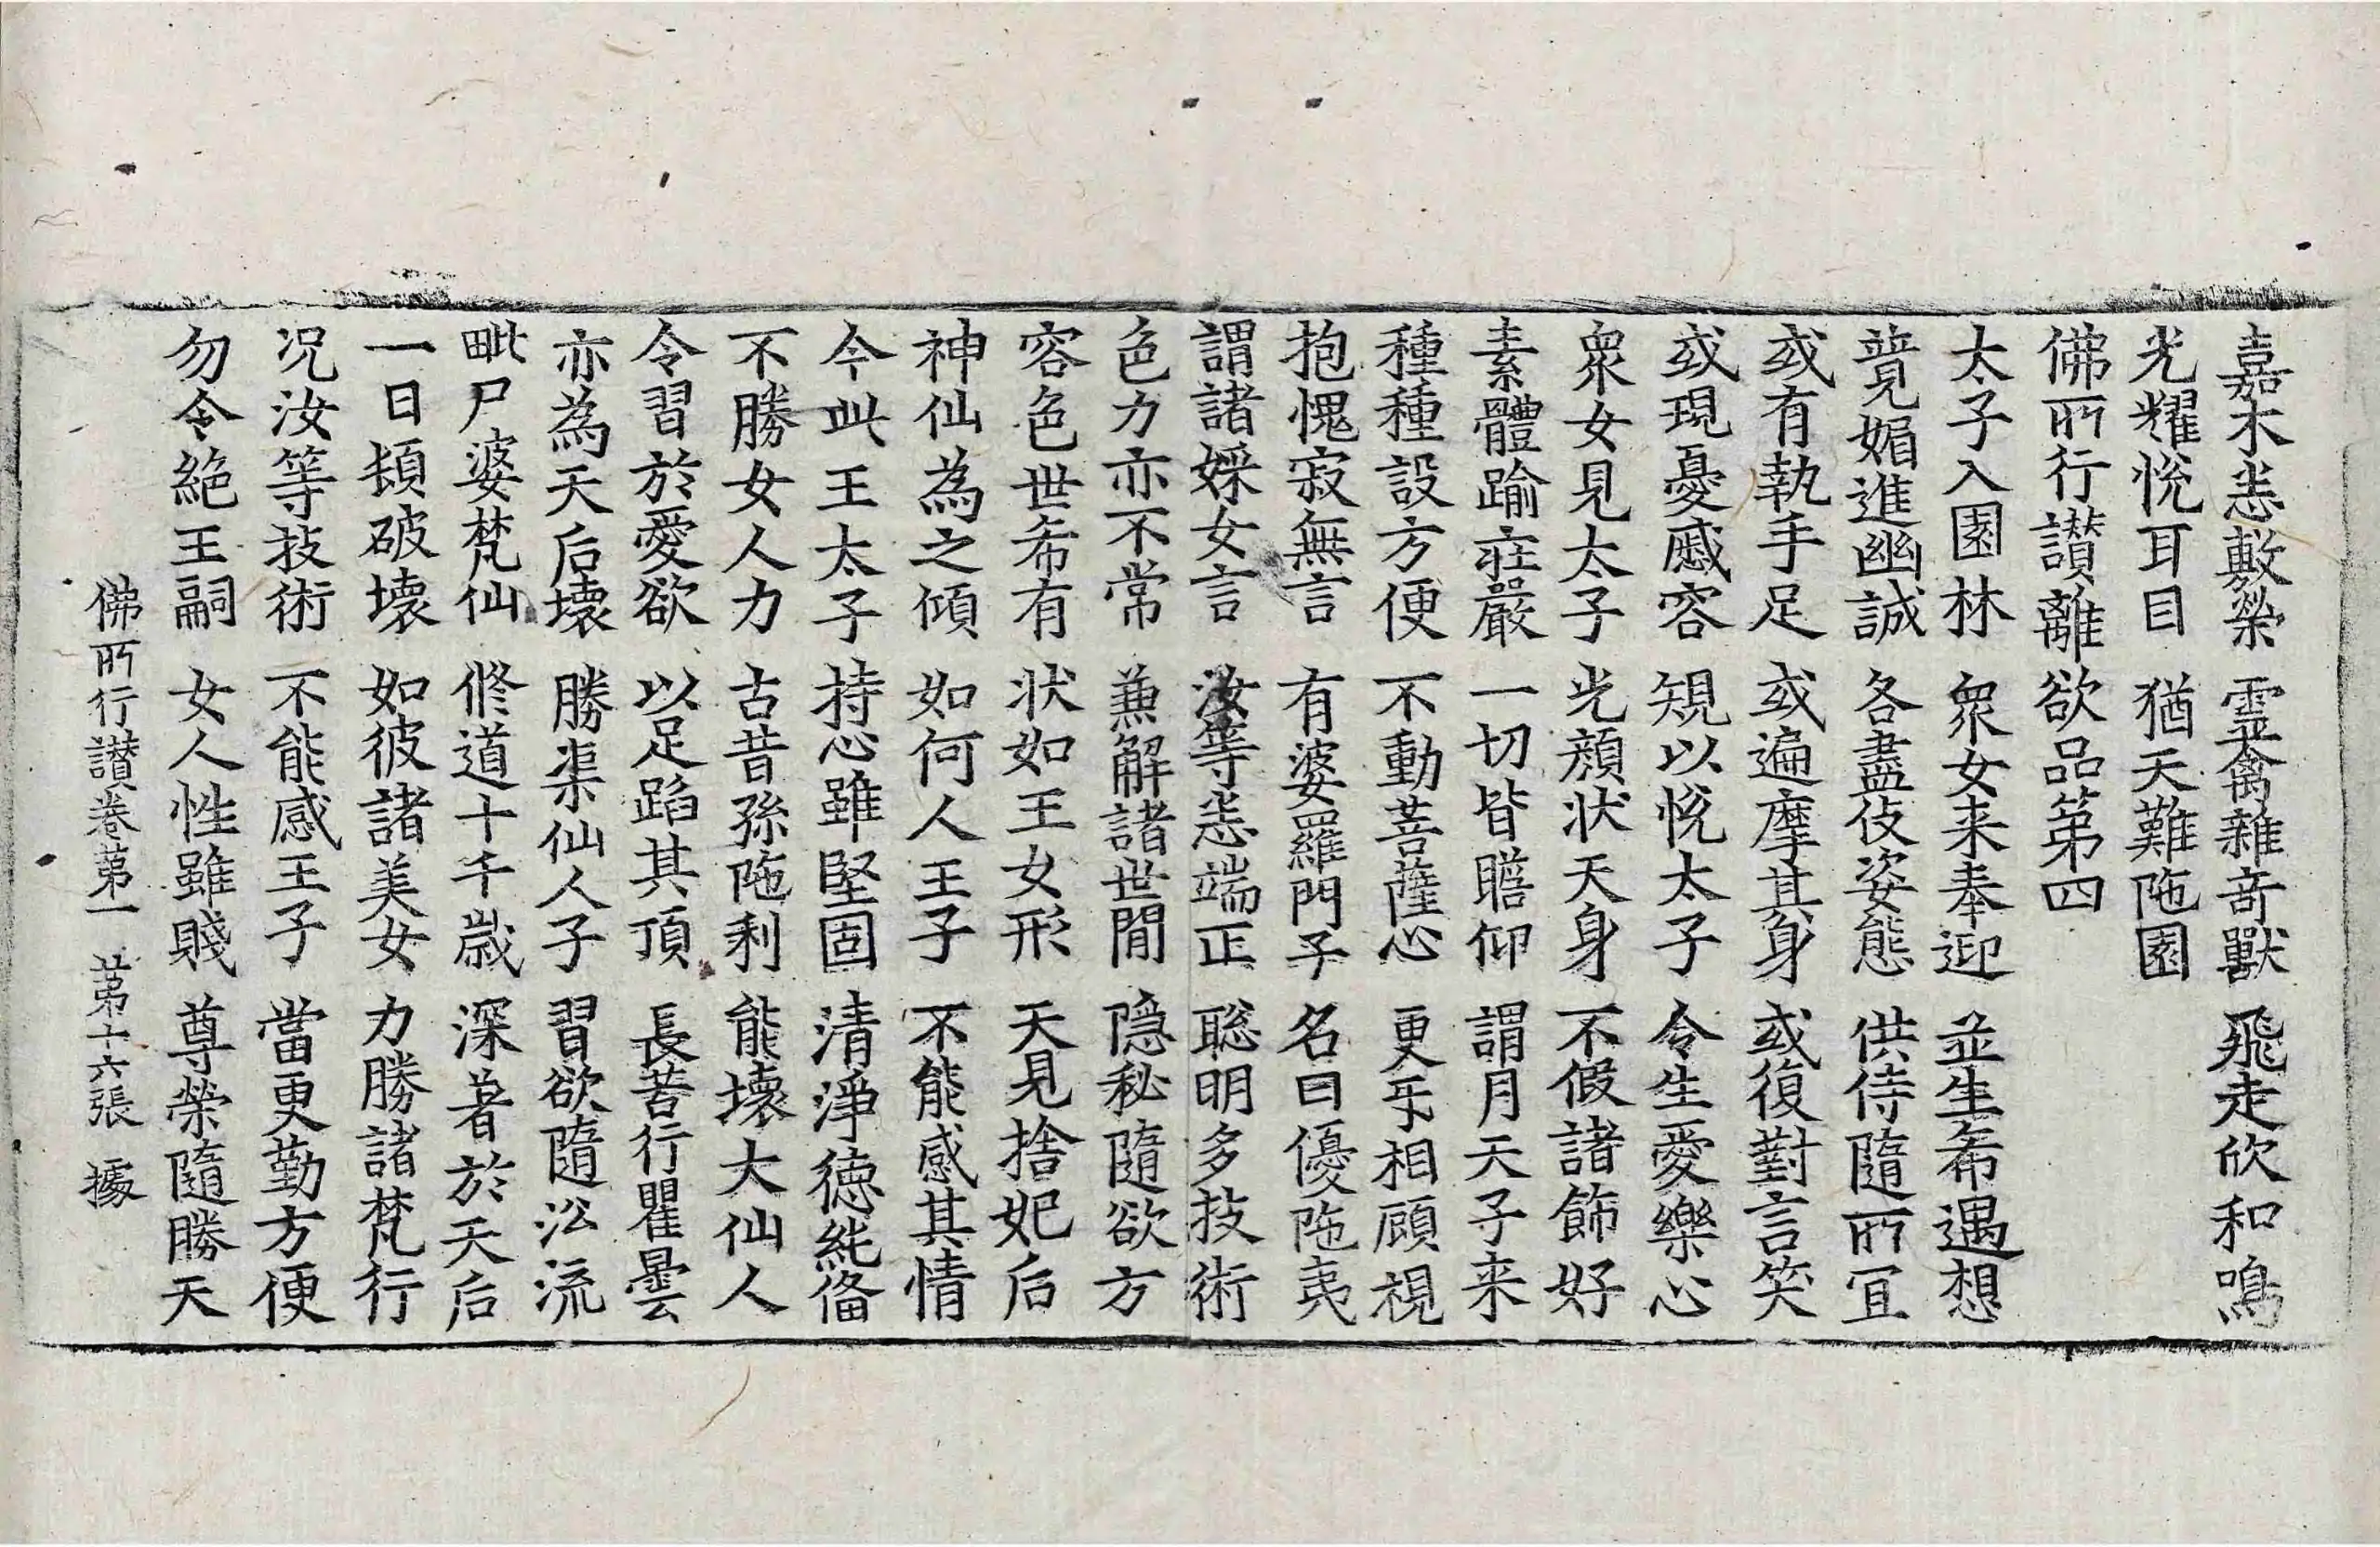 嘉木悉敷榮 靈禽雜奇獸 飛走欣和鳴
光耀悅耳目 猶天難陁園
佛所行讃離欲品第四
太子入園林 衆女来奉迎 並生希遇想
競媚進幽誠 各盡伎姿態 供侍隨所冝
或有執手足 或遍摩其身 或復對言笑
或現憂慼容 規以悅太子 令生愛樂心
衆女見太子 光顔状天身 不假諸飾好
素體踰莊嚴 一切皆瞻仰 謂月天子来
種種設方便 不動菩薩心 更㸦相顧視
抱愧寂無言 有婆羅門子 名曰優陁夷
謂諸婇女言 汝等悉端正 聡明多技術
色力亦不常 兼解諸世間 隠秘隨欲方
容色世希有 状如王女形 天見捨妃后
神仙為之傾 如何人王子 不能感其情
今此王太子 持心雖堅固 清淨德純備
不勝女人力 古昔孫陁利 能壞大仙人
令習於愛欲 以足蹈其頂 長苦行瞿曇
亦為天后壞 勝渠仙人子 習欲隨㳂流
毗尸婆梵仙 修道十千歲 深著於天后
一日頓破壞 如彼諸美女 力勝諸梵行
况汝等技術 不能感王子 當更勤方便
勿令絶王嗣 女人性雖賤 尊榮隨勝天
佛所行讃卷第一 第十六張 據